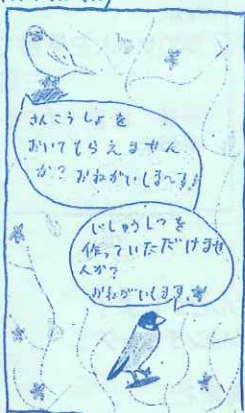 さんこうしょを
おいてもらえません
か?おねがいしま〜す!
じしゅうしつを
作っていただけませ
んか?
おねがいします。